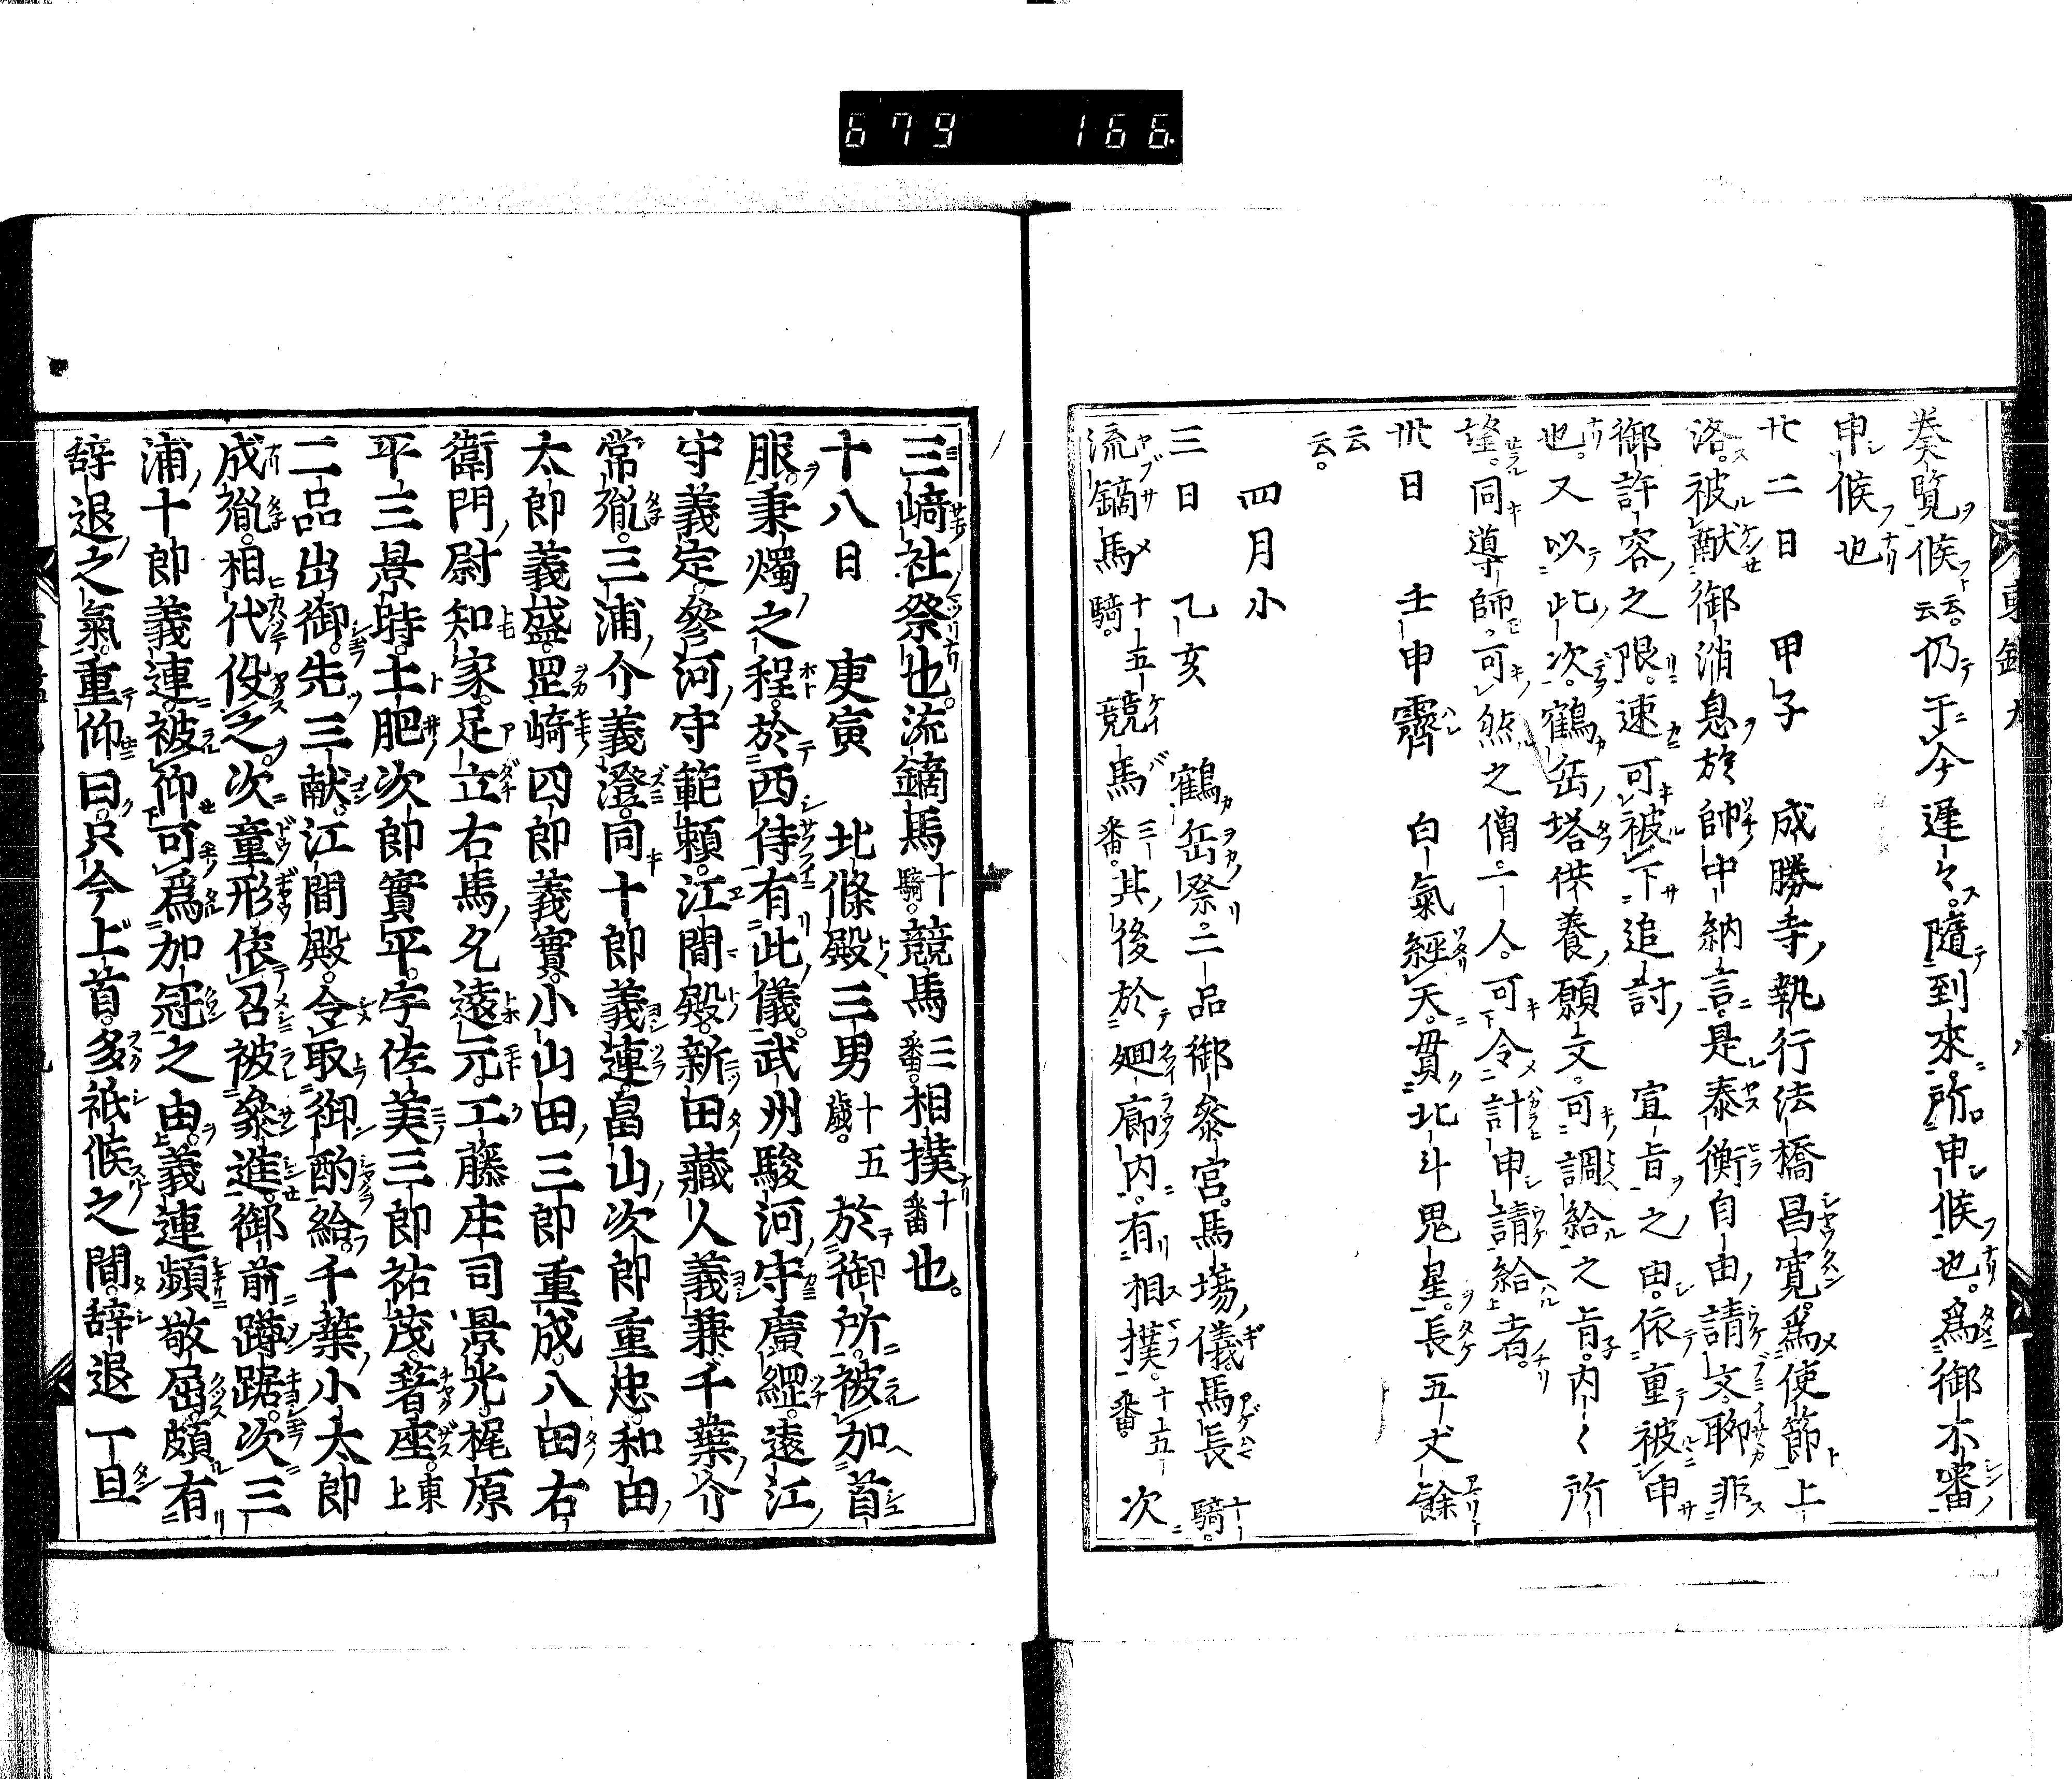 679 166
奏覽候云云。仍于今遲々。隨到來。所申候也。爲御不審
申候也
廿二日 甲子 成勝寺執行法橋昌寛。爲使節上
洛。被献御消息於帥中納言。是泰衡自由請文。聊非
御許容之限。速可被下追討 宣旨之由。依重被申
也。又以此次。鶴岳塔供養願文。可調給之旨。内々所
望。同導師。可然之僧一人。可令計申請給者。
卅日 壬申霽 白氣經天。貫北斗魁星。長五丈餘
云云。
四月小
三日 乙亥 鶴岳祭。二品御參宮。馬場儀。馬長十騎。
流鏑馬十五騎。競馬三番。其後於廻廊内。有相撲。十五番。次
三﨑社祭也。流鏑馬十騎。競馬三番。相撲十番也。
十八日 庚寅 北條殿三男十五歳。於御所。被加首
服。秉燭之程。於西侍有此儀。武州駿河守廣綱。遠江
守義定。參河守範頼。江間殿。新田藏人義兼。千葉介
常胤。三浦介義澄。同十郎義連。畠山次郎重忠。和田
太郎義盛。岡崎四郎義實。小山田三郎重成。八田右
衞門尉知家。足立右馬允遠元。工藤庄司景光。梶原
平三景時。土肥次郎實平。宇佐美三郎祐茂。著座。東上
二品出御。先三献。江間殿。令取御酌給。千葉小太郎
成胤。相代役之。次童形依召被參進。御前蹲踞。次三
浦十郎義連。被仰可爲加冠之由。義連頻敬屈。頗有
辞退之氣。重仰曰。只今上首。多祗候之間。辞退一旦